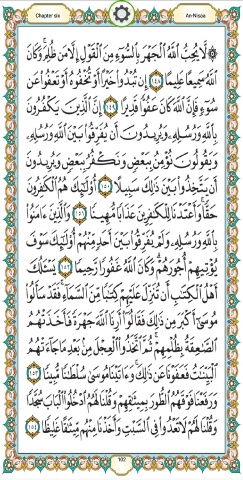 Chapter six An-Nisaa
۞ لَّا يُحِبُّ ٱللَّهُ ٱلْجَهْرَ بِٱلسُّوٓءِ مِنَ ٱلْقَوْلِ إِلَّا مَن ظُلِمَ وَكَانَ
ٱللَّهُ سَمِيعًا عَلِيمًا ١٤٨ إِن تُبْدُوا۟ خَيْرًا أَوْ تُخْفُوهُ أَوْ تَعْفُوا۟ عَن
سُوٓءٍ فَإِنَّ ٱللَّهَ كَانَ عَفُوًّا قَدِيرًا ١٤٩ إِنَّ ٱلَّذِينَ يَكْفُرُونَ
بِٱللَّهِ وَرُسُلِهِۦ وَيُرِيدُونَ أَن يُفَرِّقُوا۟ بَيْنَ ٱللَّهِ وَرُسُلِهِۦ
وَيَقُولُونَ نُؤْمِنُ بِبَعْضٍ وَنَكْفُرُ بِبَعْضٍ وَيُرِيدُونَ
أَن يَتَّخِذُوا۟ بَيْنَ ذَٰلِكَ سَبِيلًا ١٥٠ أُو۟لَٰٓئِكَ هُمُ ٱلْكَٰفِرُونَ
حَقًّا وَأَعْتَدْنَا لِلْكَٰفِرِينَ عَذَابًا مُّهِينًا ١٥١ وَٱلَّذِينَ ءَامَنُوا۟
بِٱللَّهِ وَرُسُلِهِۦ وَلَمْ يُفَرِّقُوا۟ بَيْنَ أَحَدٍ مِّنْهُمْ أُو۟لَٰٓئِكَ سَوْفَ
يُؤْتِيهِمْ أُجُورَهُمْ وَكَانَ ٱللَّهُ غَفُورًا رَّحِيمًا ١٥٢ يَسْـَٔلُكَ
أَهْلُ ٱلْكِتَٰبِ أَن تُنَزِّلَ عَلَيْهِمْ كِتَٰبًا مِّنَ ٱلسَّمَآءِ فَقَدْ سَأَلُوا۟
مُوسَىٰٓ أَكْبَرَ مِن ذَٰلِكَ فَقَالُوٓا۟ أَرِنَا ٱللَّهَ جَهْرَةً فَأَخَذَتْهُمُ
ٱلصَّٰعِقَةُ بِظُلْمِهِمْ ثُمَّ ٱتَّخَذُوا۟ ٱلْعِجْلَ مِنۢ بَعْدِ مَا جَآءَتْهُمُ
ٱلْبَيِّنَٰتُ فَعَفَوْنَا عَن ذَٰلِكَ وَءَاتَيْنَا مُوسَىٰ سُلْطَٰنًا مُّبِينًا ١٥٣
وَرَفَعْنَا فَوْقَهُمُ ٱلطُّورَ بِمِيثَٰقِهِمْ وَقُلْنَا لَهُمُ ٱدْخُلُوا۟ ٱلْبَابَ سُجَّدًا
وَقُلْنَا لَهُمْ لَا تَعْدُوا۟ فِى ٱلسَّبْتِ وَأَخَذْنَا مِنْهُم مِّيثَٰقًا غَلِيظًا ١٥٤
102